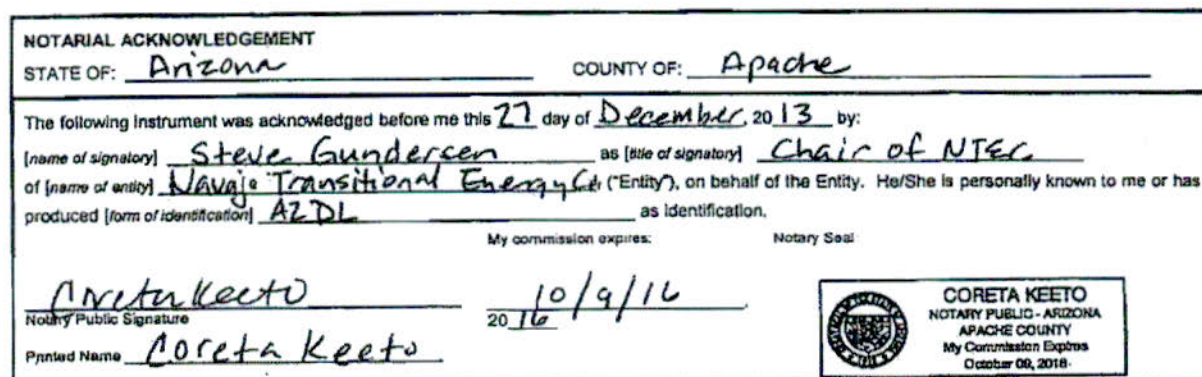 NOTARIAL ACKNOWLEDGEMENT
STATE OF: Arizona COUNTY OF: Apache
The following instrument was acknowledged before me this 27 day of December, 2013 by:
[name of signatory] Steve Gundersen as [title of signatory] Chair of NTEC
of [name of entity] Navajo Transitional Energy Co. ("Entity"), on behalf of the Entity. He/She is personally known to me or has
produced [form of identification] AZDL as identification.
My commission expires: Notary Seal
Coreta Keeto 10/9/16
Notary Public Signature 2016
Printed Name Coreta Keeto
CORETA KEETO
NOTARY PUBLIC - ARIZONA
APACHE COUNTY
My Commission Expires
October 09, 2016